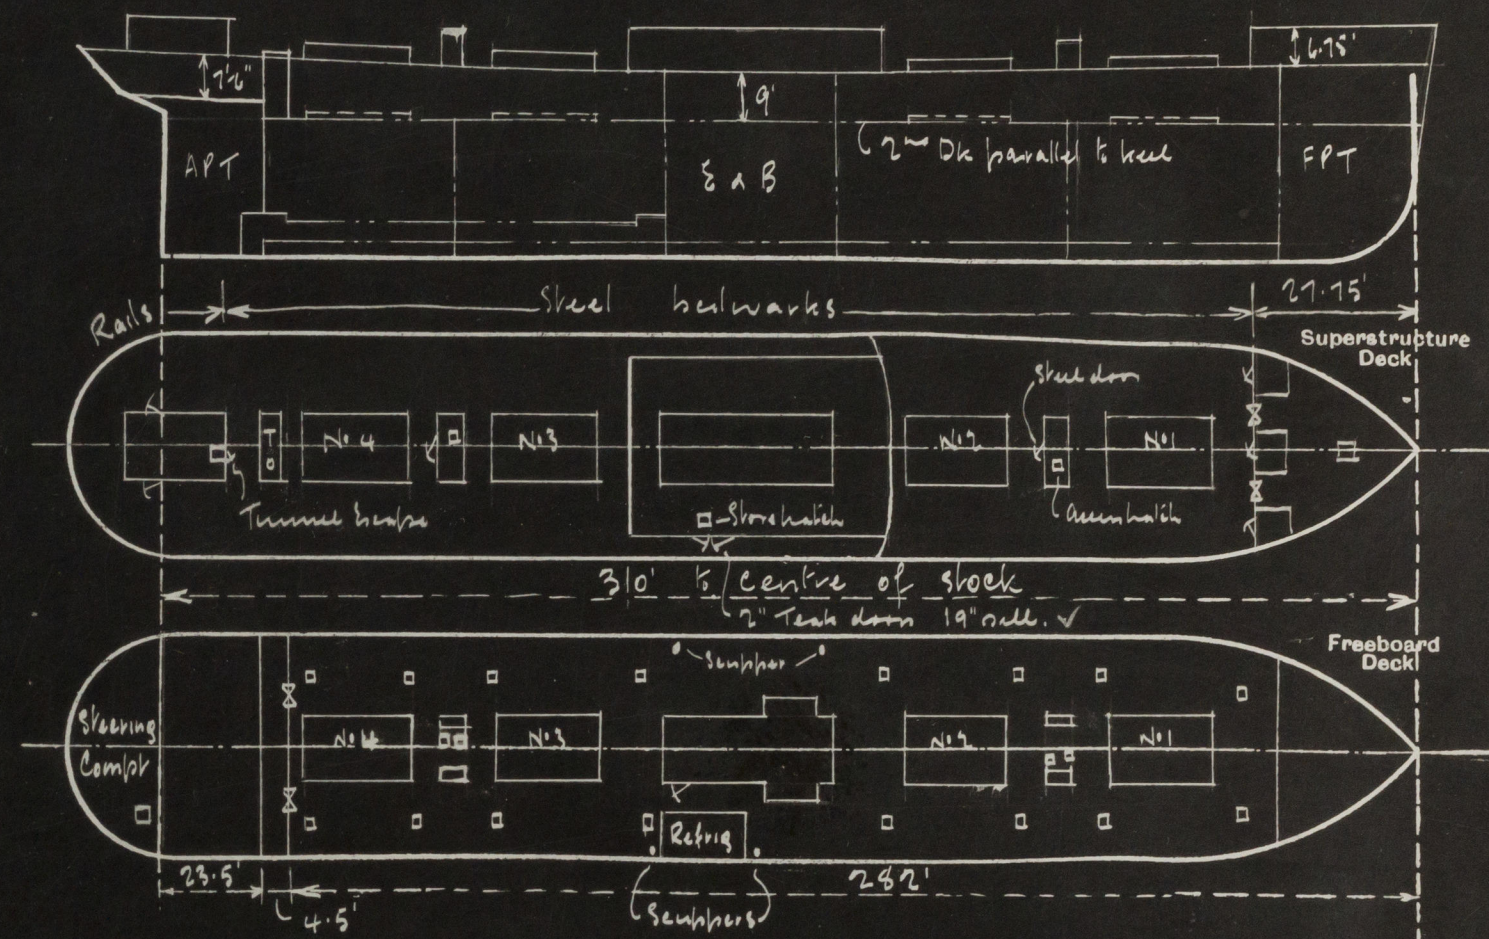 7'6"
9'
6.75'
APT
E & B
2nd Dk parallel to keel
FPT
27.75'
Rails
Steel bulwarks
Superstructure
Deck
Steel door
T
O
No 4
No 3
No 2
No 1
Tunnel Escape
Store hatch
310' to centre of stock
2" Teak doors 19" sill. ✓
Freeboard
Deck
Scupper
Steering
Compt
No 4
No 3
No 2
No 1
Refrig
23.5'
282'
4.5'
Scuppers